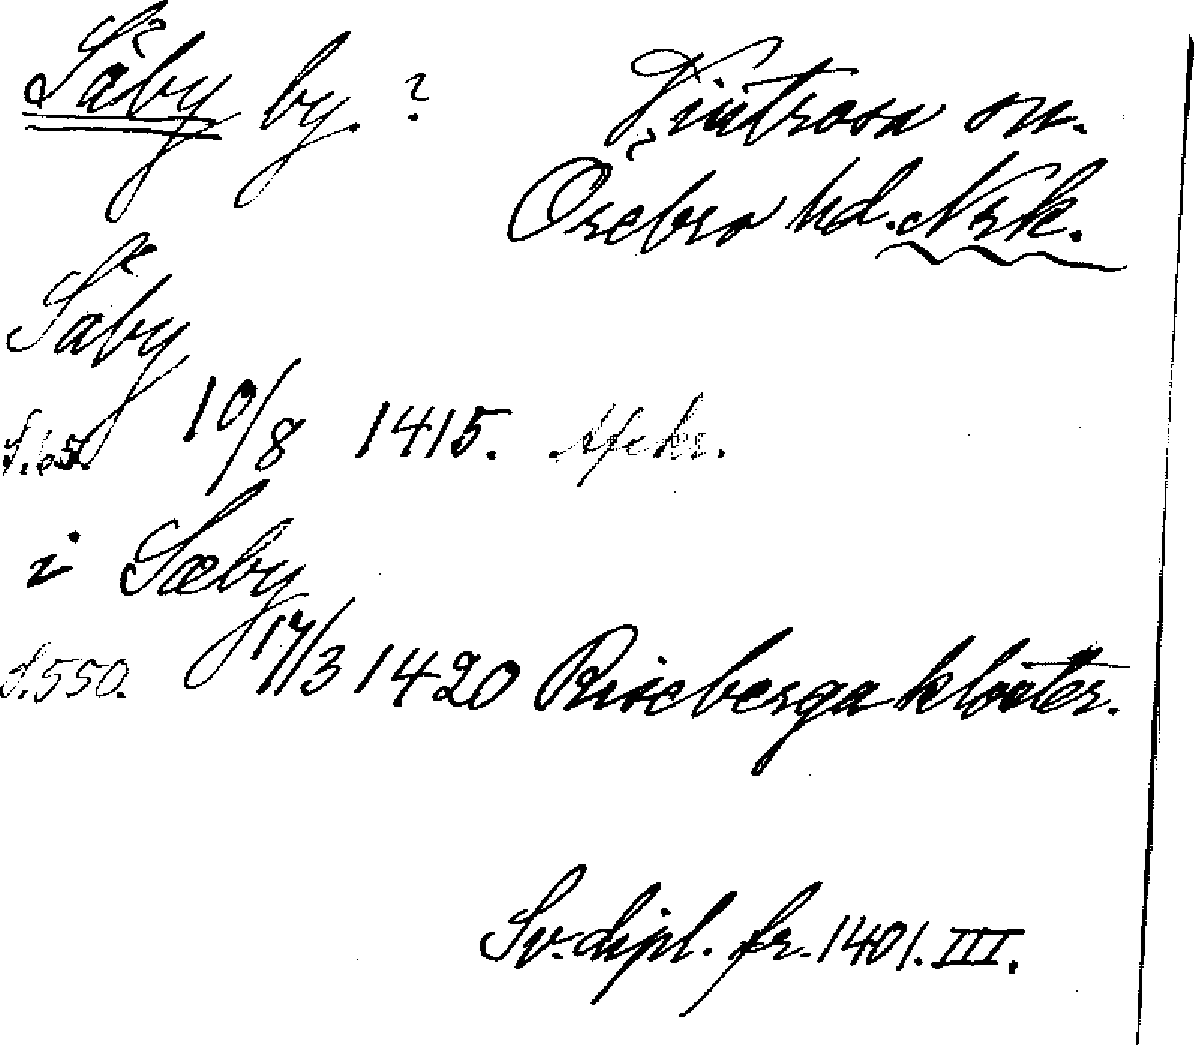 Säby by. ?
Vintrosa sn.
Örebro hd. Nrk.
Säby
s. 65. 10/8 1415. Afskr.
i Sæby
s. 550. 17/3 1420 Riseberga kloster.
Sv. dipl. fr. 1401. III.